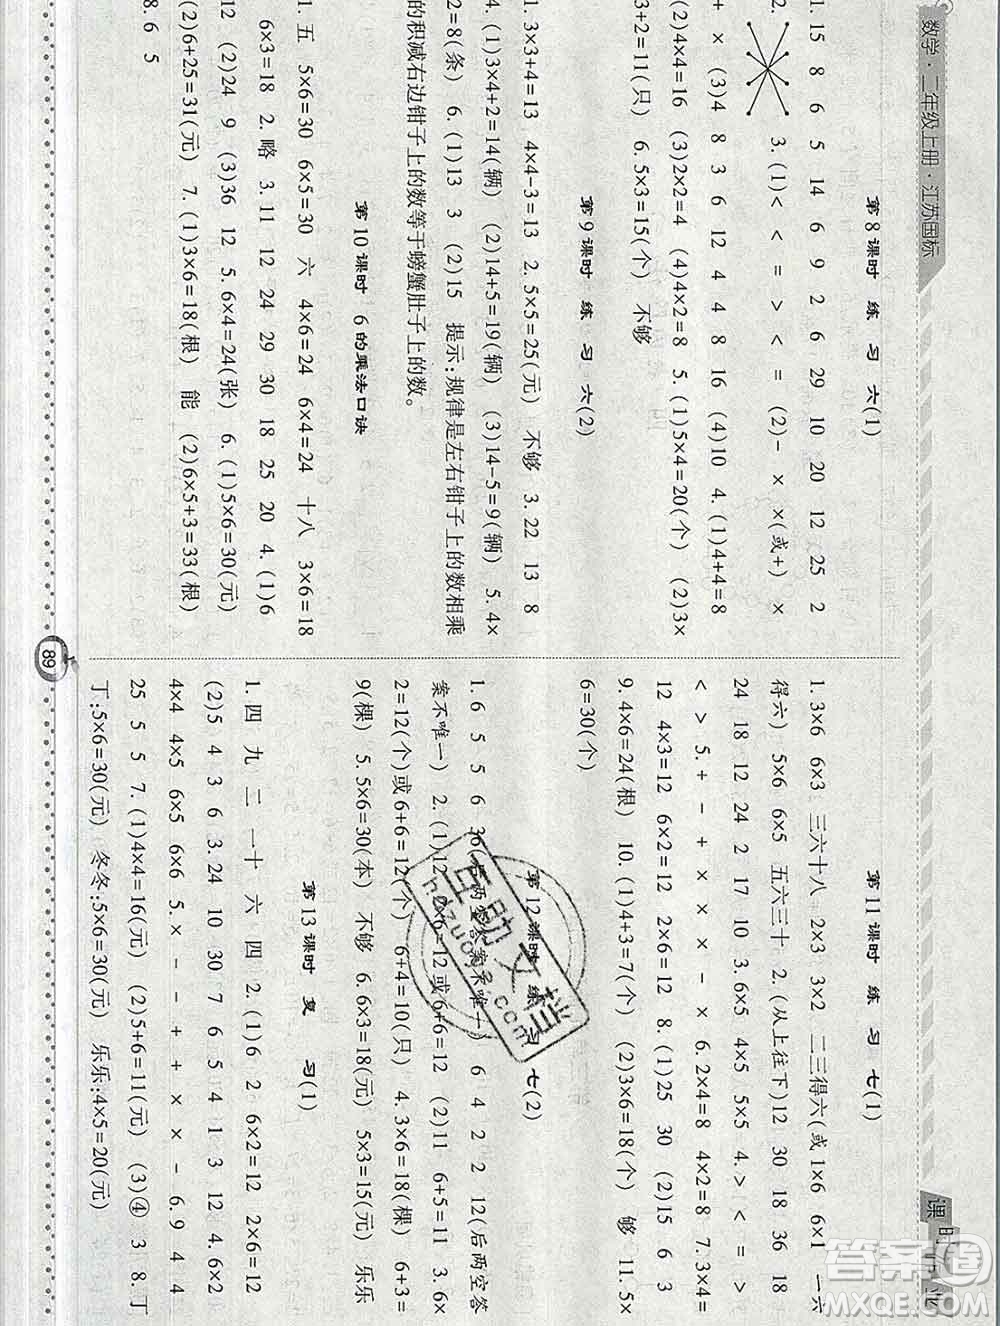 数学·二年级上册·江苏国标
课时作业
第8课时 练 习 六(1)
1. 15 8 6 5 14 6 9 2 6 29 10 20 12 25 2
2.
3. (1)< < = > < = (2)- × ×(或+) ×
+ × (3)4 8 3 6 12 4 4 8 16 (4)10 4. (1)4+4=8
(2)4×4=16 (3)2×2=4 (4)4×2=8 5. (1)5×4=20(个) (2)3×
3+2=11(只) 6. 5×3=15(个) 不够
第9课时 练 习 六(2)
1. 3×3+4=13 4×4-3=13 2. 5×5=25(元) 不够 3. 22 13 8
4. (1)3×4+2=14(辆) (2)14+5=19(辆) (3)14-5=9(辆) 5. 4×
2=8(条) 6. (1)13 3 (2)15 提示:规律是左右钳子上的数相乘
的积减右边钳子上的数等于螃蟹肚子上的数。
第10课时 6的乘法口诀
1. 五 5×6=30 6×5=30 六 4×6=24 6×4=24 十八 3×6=18
6×3=18 2. 略 3. 11 12 24 29 30 18 25 20 4. (1)6
12 (2)24 9 (3)36 12 5. 6×4=24(张) 6. (1)5×6=30(元)
(2)6+25=31(元) 7. (1)3×6=18(根) 能 (2)6×5+3=33(根)
8. 6 5
第11课时 练 习 七(1)
1. 3×6 6×3 三六十八 2×3 3×2 二三得六(或1×6 6×1 一六
得六) 5×6 6×5 五六三十 2. (从上往下)12 30 18 36 18
24 18 12 24 2 17 10 3. 6×5 4×5 5×5 4. > < = >
< > 5. + - + × × × - × 6. 2×4=8 4×2=8 7. 3×4=
12 4×3=12 6×2=12 2×6=12 8. (1)25 30 (2)15 6 3
9. 4×6=24(根) 10. (1)4+3=7(个) (2)3×6=18(个) 够 11. 5×
6=30(个)
第12课时 练 习 七(2)
1. 6 5 5 6 36(后两空答案不唯一) 6 4 2 2 12(后两空答
案不唯一) 2. (1)12 2×6=12或6+6=12 (2)11 6+5=11 3. 6×
2=12(个)或6+6=12(个) 6+4=10(只) 4. 3×6=18(棵) 6+3=
9(棵) 5. 5×6=30(本) 不够 6. 6×3=18(元) 5×3=15(元) 乐乐
第13课时 复 习(1)
1. 四 九 二 一十 六 四 2. (1)6 2 6×2=12 2×6=12
(2)5 4 3 6 3. 24 10 30 7 6 5 4 1 3 12 4. 6×2
4×4 4×5 6×5 6×6 5. × - - + + × × - 6. 9 4 4
25 5 5 7. (1)4×4=16(元) (2)5+6=11(元) (3)④ 3 8. 丁
丁:5×6=30(元) 冬冬:5×6=30(元) 乐乐:4×5=20(元)
89
互助文档
hdzuoye.com
答案圈
MXQE.COM